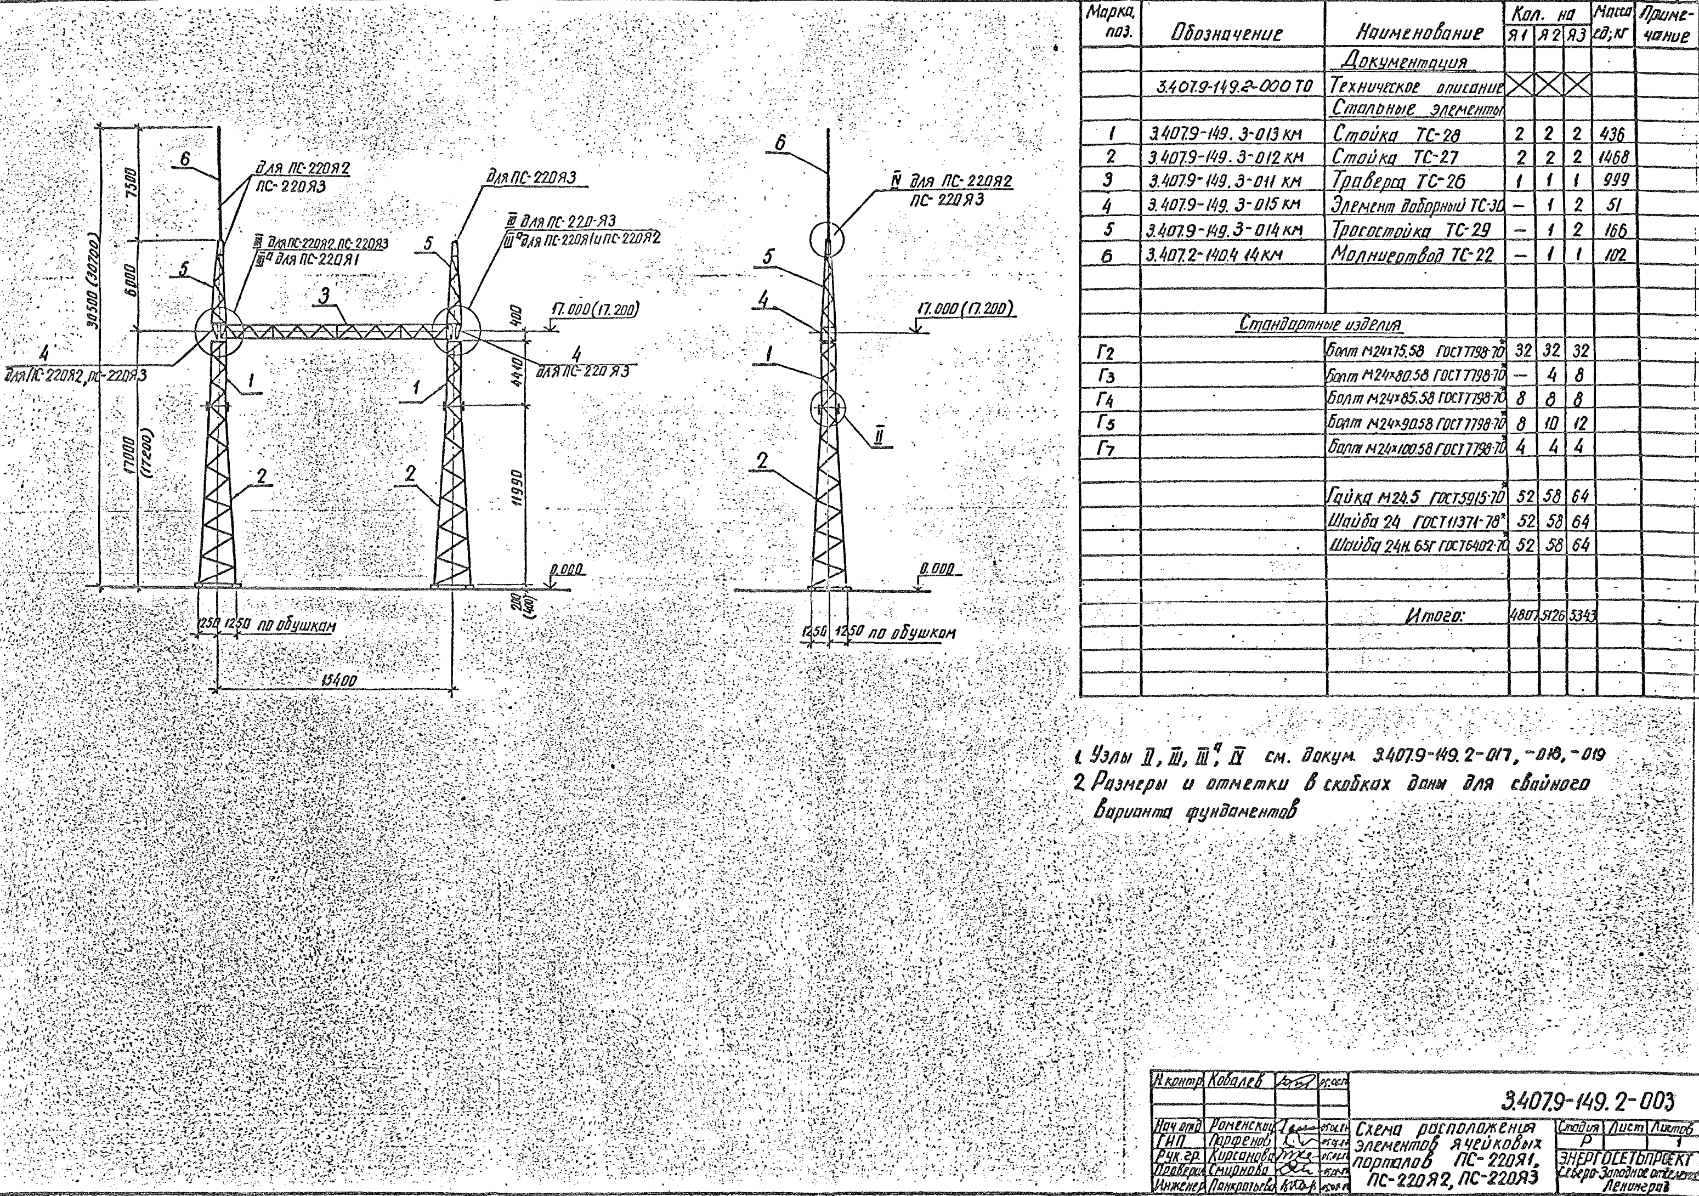 6
для ПС-220Я2
ПС-220Я3
для ПС-220Я3
III для ПС-220Я2, ПС-220Я3
IIIа для ПС-220Я1
III для ПС-220-Я3
IIIа для ПС-220Я1 и ПС-220Я2
5
5
3
17.000 (17.200)
4
для ПС-220Я2, ПС-220Я3
4
для ПС-220Я3
1
1
2
2
0.000
30500 (30700)
7500
6000
17000
(17200)
400
4410
11990
200
(400)
1250
1250 по обушкам
15400
6
IV для ПС-220Я2
ПС-220Я3
5
4
17.000 (17.200)
1
II
2
0.000
1250
1250 по обушкам
Марка, поз.
Обозначение
Наименование
Кол. на
Я1 Я2 Я3
Масса ед, кг
Приме-
чание
Документация
3.407.9-149.2-000 ТО Техническое описание
Стальные элементы
1 3.407.9-149.3-013 КМ Стойка ТС-28 2 2 2 436
2 3.407.9-149.3-012 КМ Стойка ТС-27 2 2 2 1468
3 3.407.9-149.3-011 КМ Траверса ТС-26 1 1 1 999
4 3.407.9-149.3-015 КМ Элемент доборный ТС-30 — 1 2 51
5 3.407.9-149.3-014 КМ Тросостойка ТС-29 — 1 2 166
6 3.407.2-140.4 14 КМ Молниеотвод ТС-22 — 1 1 102
Стандартные изделия
Г2 Болт М24×75.58 ГОСТ 7798-70* 32 32 32
Г3 Болт М24×80.58 ГОСТ 7798-70* — 4 8
Г4 Болт М24×85.58 ГОСТ 7798-70* 8 8 8
Г5 Болт М24×90.58 ГОСТ 7798-70* 8 10 12
Г7 Болт М24×100.58 ГОСТ 7798-70* 4 4 4
Гайка М24.5 ГОСТ 5915-70* 52 58 64
Шайба 24 ГОСТ 11371-78* 52 58 64
Шайба 24Н. 65Г ГОСТ 6402-70* 52 58 64
Итого: 4807 5126 5343
1. Узлы II, III, IIIа, IV см. докум. 3.407.9-149.2-017, -018, -019
2. Размеры и отметки в скобках даны для свайного
варианта фундаментов
Н.контр Ковалев
3.407.9-149.2-003
Нач отд Роменский
ГИП Парфенов
Рук.гр. Кирсанова
Проверил Смирнова
Инженер Панкратьева
Схема расположения
элементов ячейковых
порталов ПС-220Я1,
ПС-220Я2, ПС-220Я3
Стадия Лист Листов
Р 1
ЭНЕРГОСЕТЬПРОЕКТ
Северо-Западное отделение
Ленинград